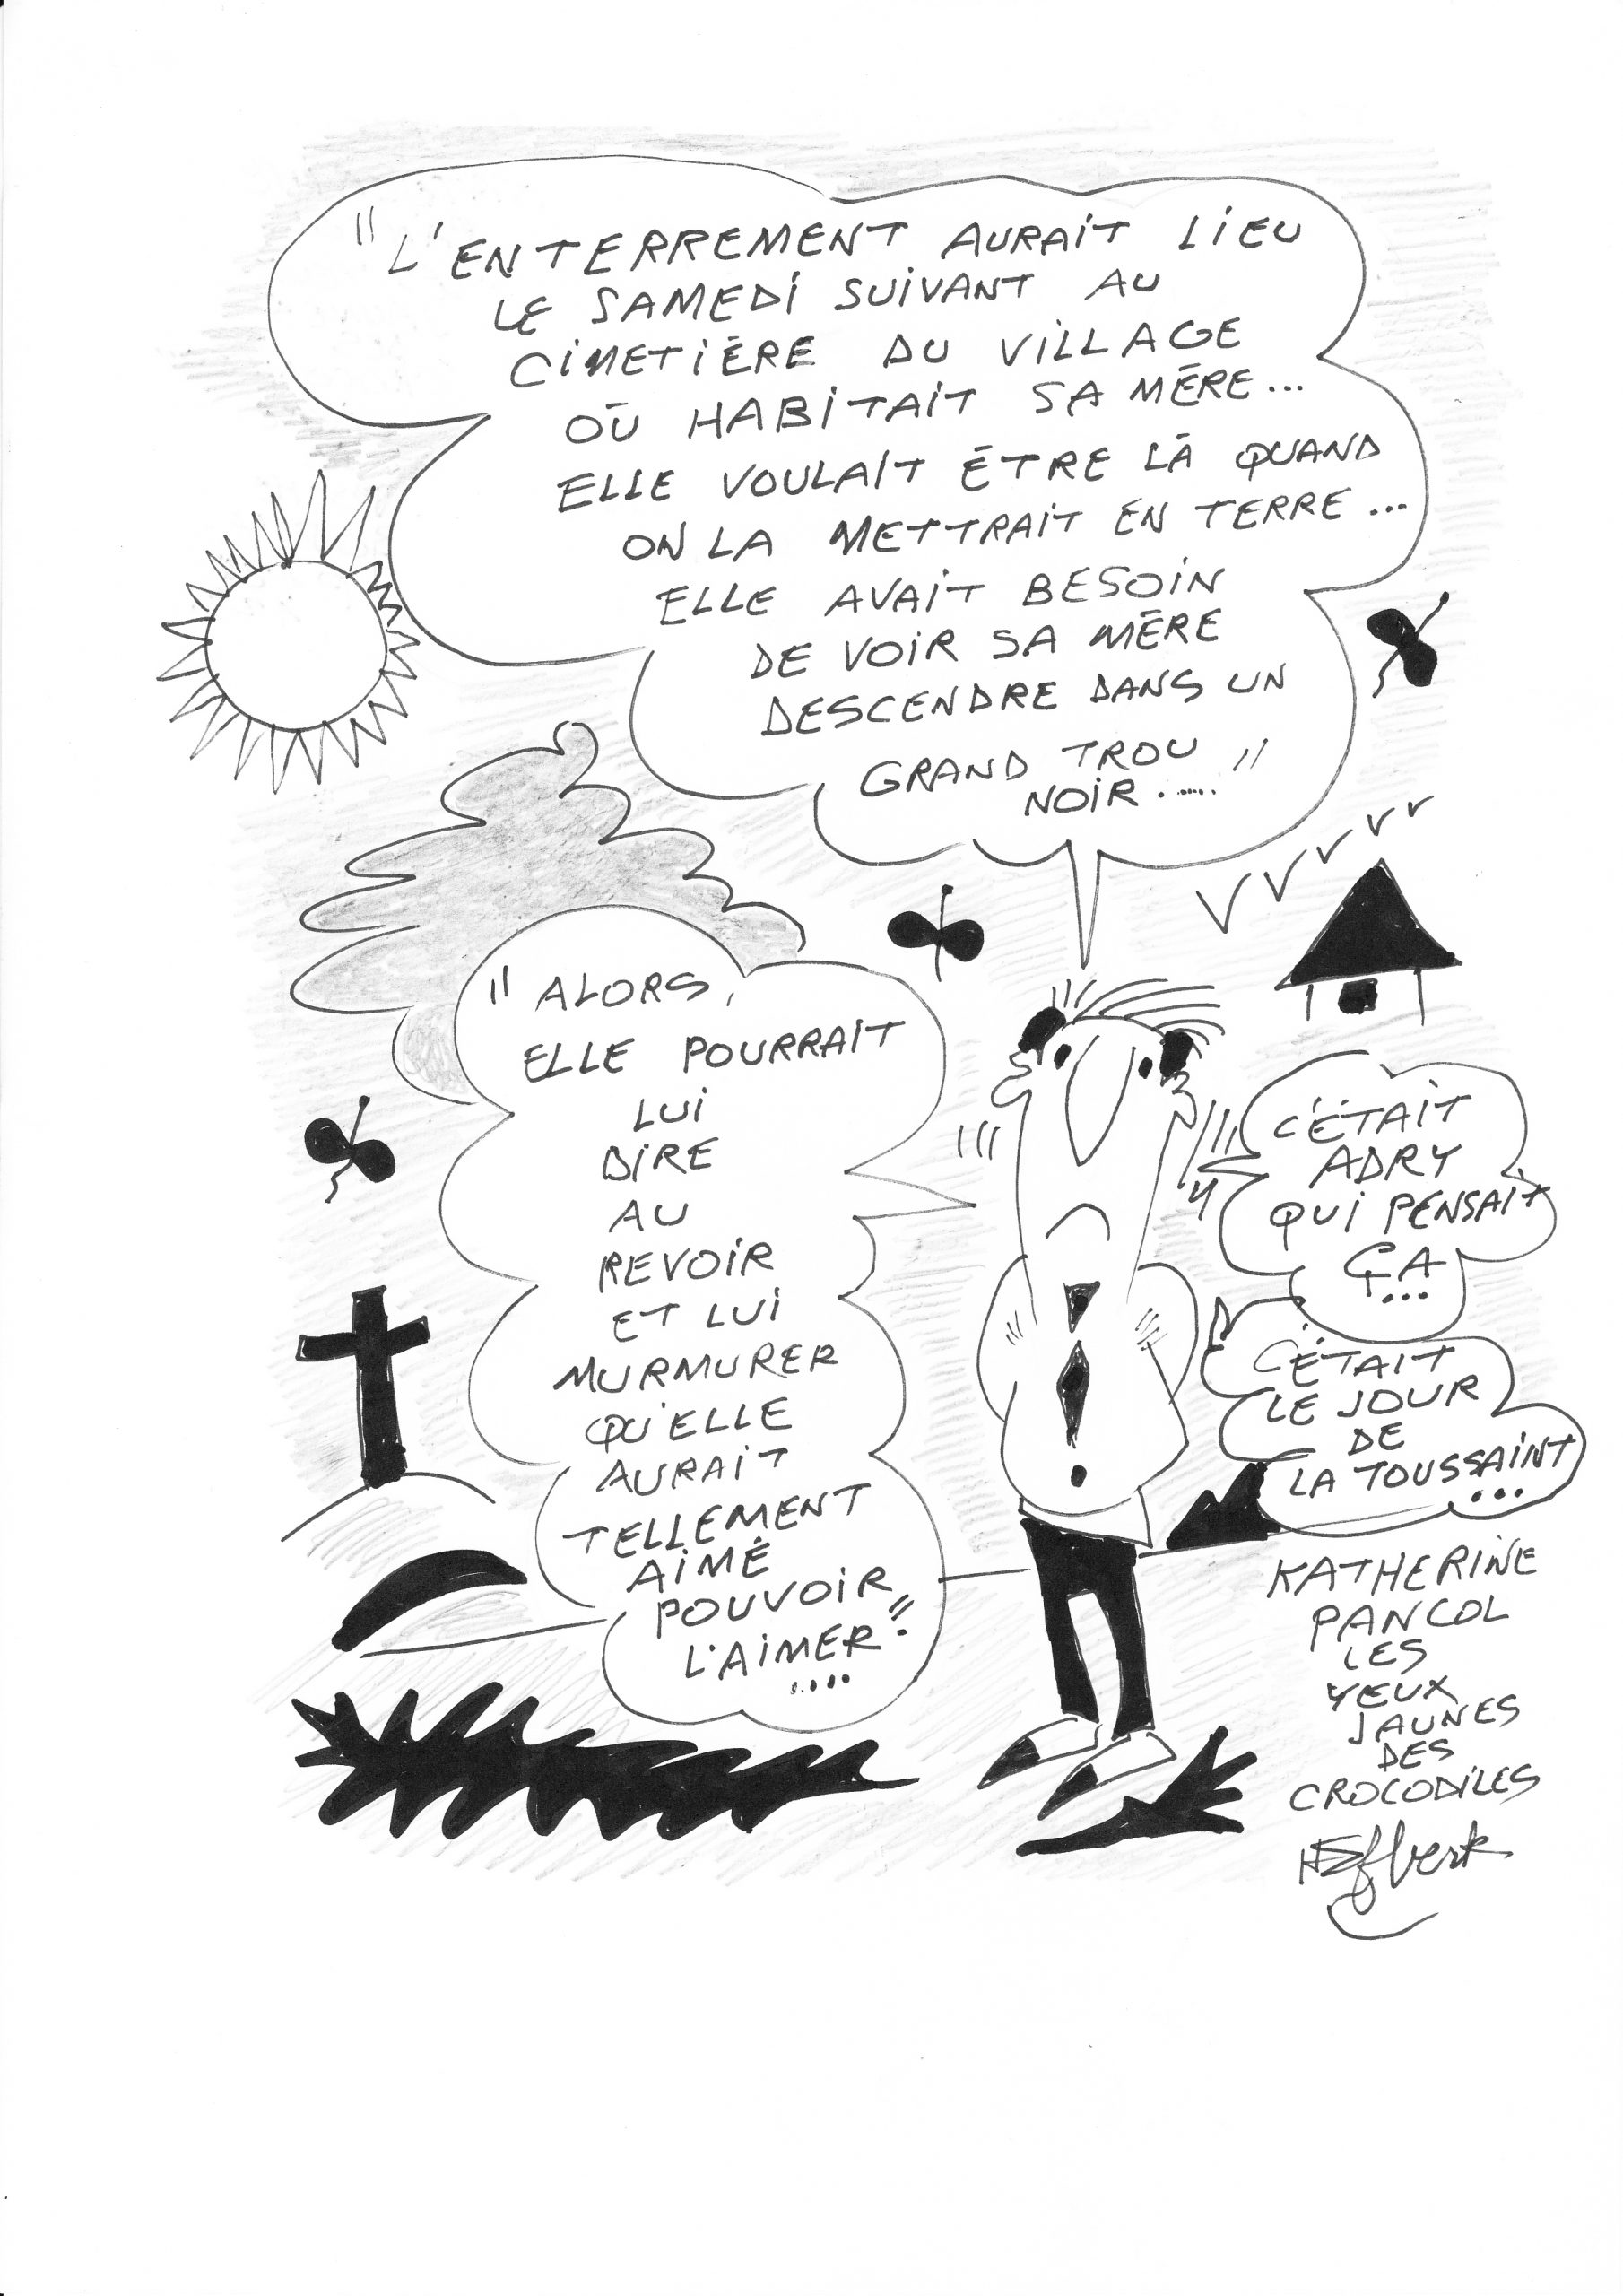 " L'ENTERREMENT AURAIT LIEU
LE SAMEDI SUIVANT AU
CIMETIÈRE DU VILLAGE
OÙ HABITAIT SA MÈRE...
ELLE VOULAIT ÊTRE LÀ QUAND
ON LA METTRAIT EN TERRE...
ELLE AVAIT BESOIN
DE VOIR SA MÈRE
DESCENDRE DANS UN
GRAND TROU
NOIR...... "
" ALORS,
ELLE POURRAIT
LUI
DIRE
AU
REVOIR
ET LUI
MURMURER
QU'ELLE
AURAIT
TELLEMENT
AIMÉ
POUVOIR
L'AIMER".
....
C'ÉTAIT
ADRY
QUI PENSAIT
ÇA
...
C'ÉTAIT
LE JOUR
DE
LA TOUSSAINT
...
KATHERINE
PANCOL
LES
YEUX
JAUNES
DES
CROCODILES